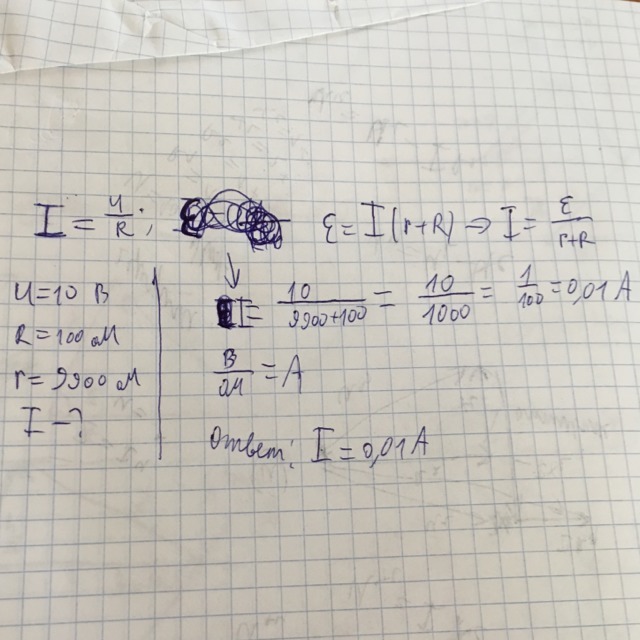 I = U/R; ε = I(r+R) → I = ε/(r+R)
U = 10 В
R = 100 Ом
r = 9900 Ом
I - ?
I = 10/(9900+100) = 10/1000 = 1/100 = 0,01 А
В/Ом = А
Ответ: I = 0,01 А